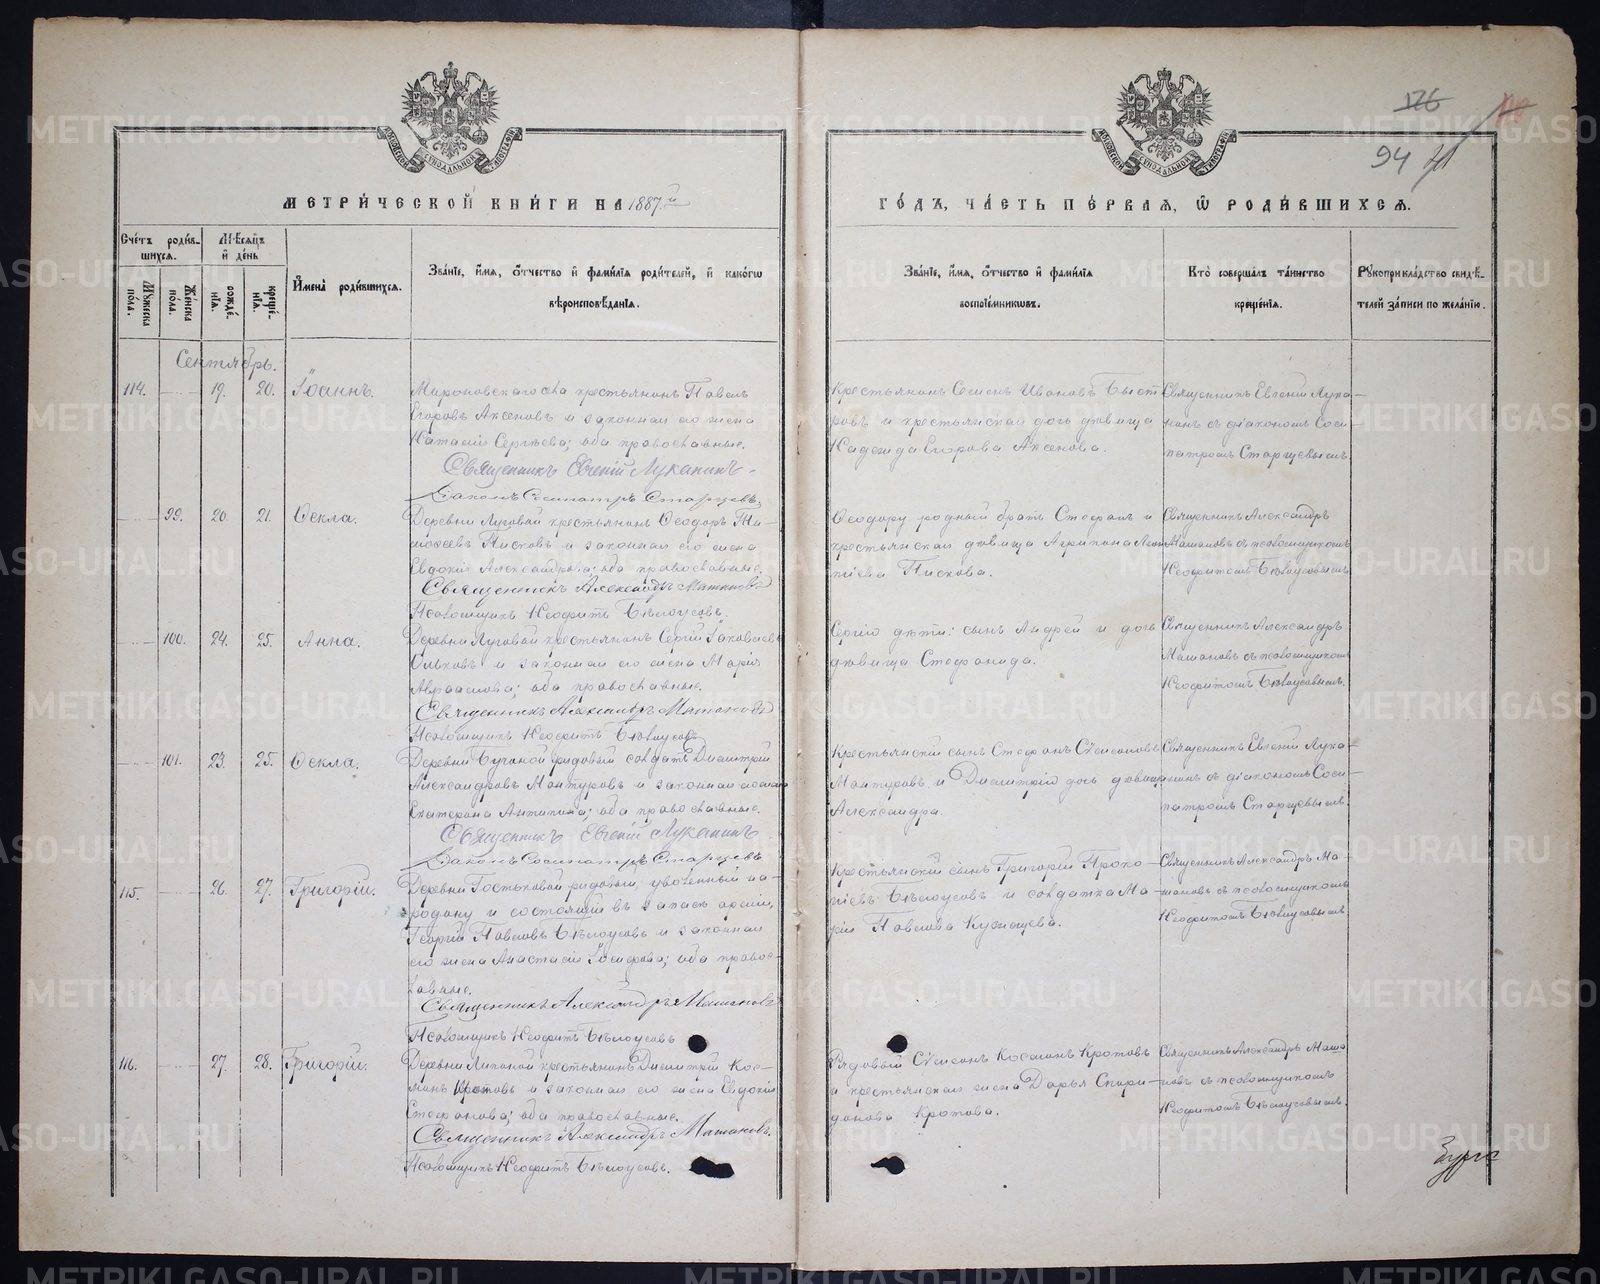 176
94
МЕТРИ́ЧЕСКОЙ КНИ́ГИ НА 1887й
ГО́ДЪ, ЧА́СТЬ ПЕ́РВАЯ, Ѡ РОДИ́ВШИХСЯ.
Сче́тъ роди́в-
шихся.
Му́жеска по́ла.
Же́нска по́ла.
Мѣ́сяцъ
и҆ де́нь
рожде́-
нїя.
креще́-
нїя.
И҆мена̀ роди́вшихся.
Зва́нїе, и҆́мя, ѻ҆́тчество и҆ фами́лїя роди́телей, и҆ како́гѡ
вѣроисповѣ́данїя.
Зва́нїе, и҆́мя, ѻ҆́тчество и҆ фами́лїя
воспрїе́мникѡвъ.
Кто̀ соверша́лъ та́инство
креще́нїя.
Рꙋкоприкла́дство свидѣ́-
телей за́писи по жела́нїю.
Сентябрь.
114. 19. 20. Іоаннъ.
Мироновскаго села крестьянинъ Павелъ
Егоровъ Аксеновъ и законная его жена
Наталія Сергѣева; оба православные.
Священникъ Евгеній Луканинъ
Діаконъ Сосипатръ Старцевъ
Крестьянинъ Семенъ Ивановъ Быст
ровъ и крестьянская дочь дѣвица
Надежда Егорова Аксенова.
Священникъ Евгеній Лука-
нинъ съ діакономъ Соси-
патромъ Старцевымъ
99. 20. 21. Ѳекла.
Деревни Луговой крестьянинъ Ѳеодоръ Ти-
моѳеевъ Писковъ и законная его жена
Евдокія Александрова; оба православные.
Священникъ Александръ Матановъ
Псаломщикъ Неофитъ Бѣлоусовъ.
Ѳеодору родный братъ Стефанъ и
крестьянская дѣвица Агрипина
Пискова.
Священникъ Александръ
Матановъ съ псаломщикомъ
Неофитомъ Бѣлоусовымъ
100. 24. 25. Анна.
Деревни Луговой крестьянинъ Сергій Іаковлевъ
Ольковъ и законная его жена Марія
Авраамова; оба православные.
Священникъ Александръ Матановъ
Псаломщикъ Неофитъ Бѣлоусовъ
Сергія дѣти: сынъ Андрей и дочь
дѣвица Стефанида.
Священникъ Александръ
Матановъ съ псаломщикомъ
Неофитомъ Бѣлоусовымъ.
101. 23. 25. Ѳекла.
Деревни рядовый солдатъ Димитрій
Александровъ Монтуровъ и законная его жена
Екатерина Антипина; оба православные.
Священникъ Евгеній Луканинъ
Діаконъ Сосипатръ Старцевъ
Крестьянскій сынъ Стефанъ Сѵмеоновъ
Монтуровъ и Димитрія дочь дѣвица
Александра.
Священникъ Евгеній Лука-
нинъ съ діакономъ Соси-
патромъ Старцевымъ.
115. 26. 27. Григорій.
Деревни Гостьковой рядовый, уволенный на
родину и состоящій въ запасѣ арміи,
Георгій Павловъ Бѣлоусовъ и законная
его жена Анастасія Іосифова; оба правос-
лавные.
Священникъ Александръ Матановъ
Псаломщикъ Неофитъ Бѣлоусовъ
Крестьянскій сынъ Григорій Проко-
піевъ Бѣлоусовъ и солдатка Ма-
рія Павлова Кузнецова.
Священникъ Александръ Ма-
тановъ съ псаломщикомъ
Неофитомъ Бѣлоусовымъ.
116. 27. 28. Григорій.
Деревни Липиной крестьянинъ Димитрій Кос-
минъ Кротовъ и законная его жена Евдокія
Стефанова; оба православные.
Священникъ Александръ Матановъ.
Псаломщикъ Неофитъ Бѣлоусовъ.
Рядовый Сѵмеонъ Космимъ Кротовъ
и крестьянская жена Дарья Спири-
донова Кротова.
Священникъ Александръ Мата-
новъ съ псаломщикомъ
Неофитомъ Бѣлоусовымъ.